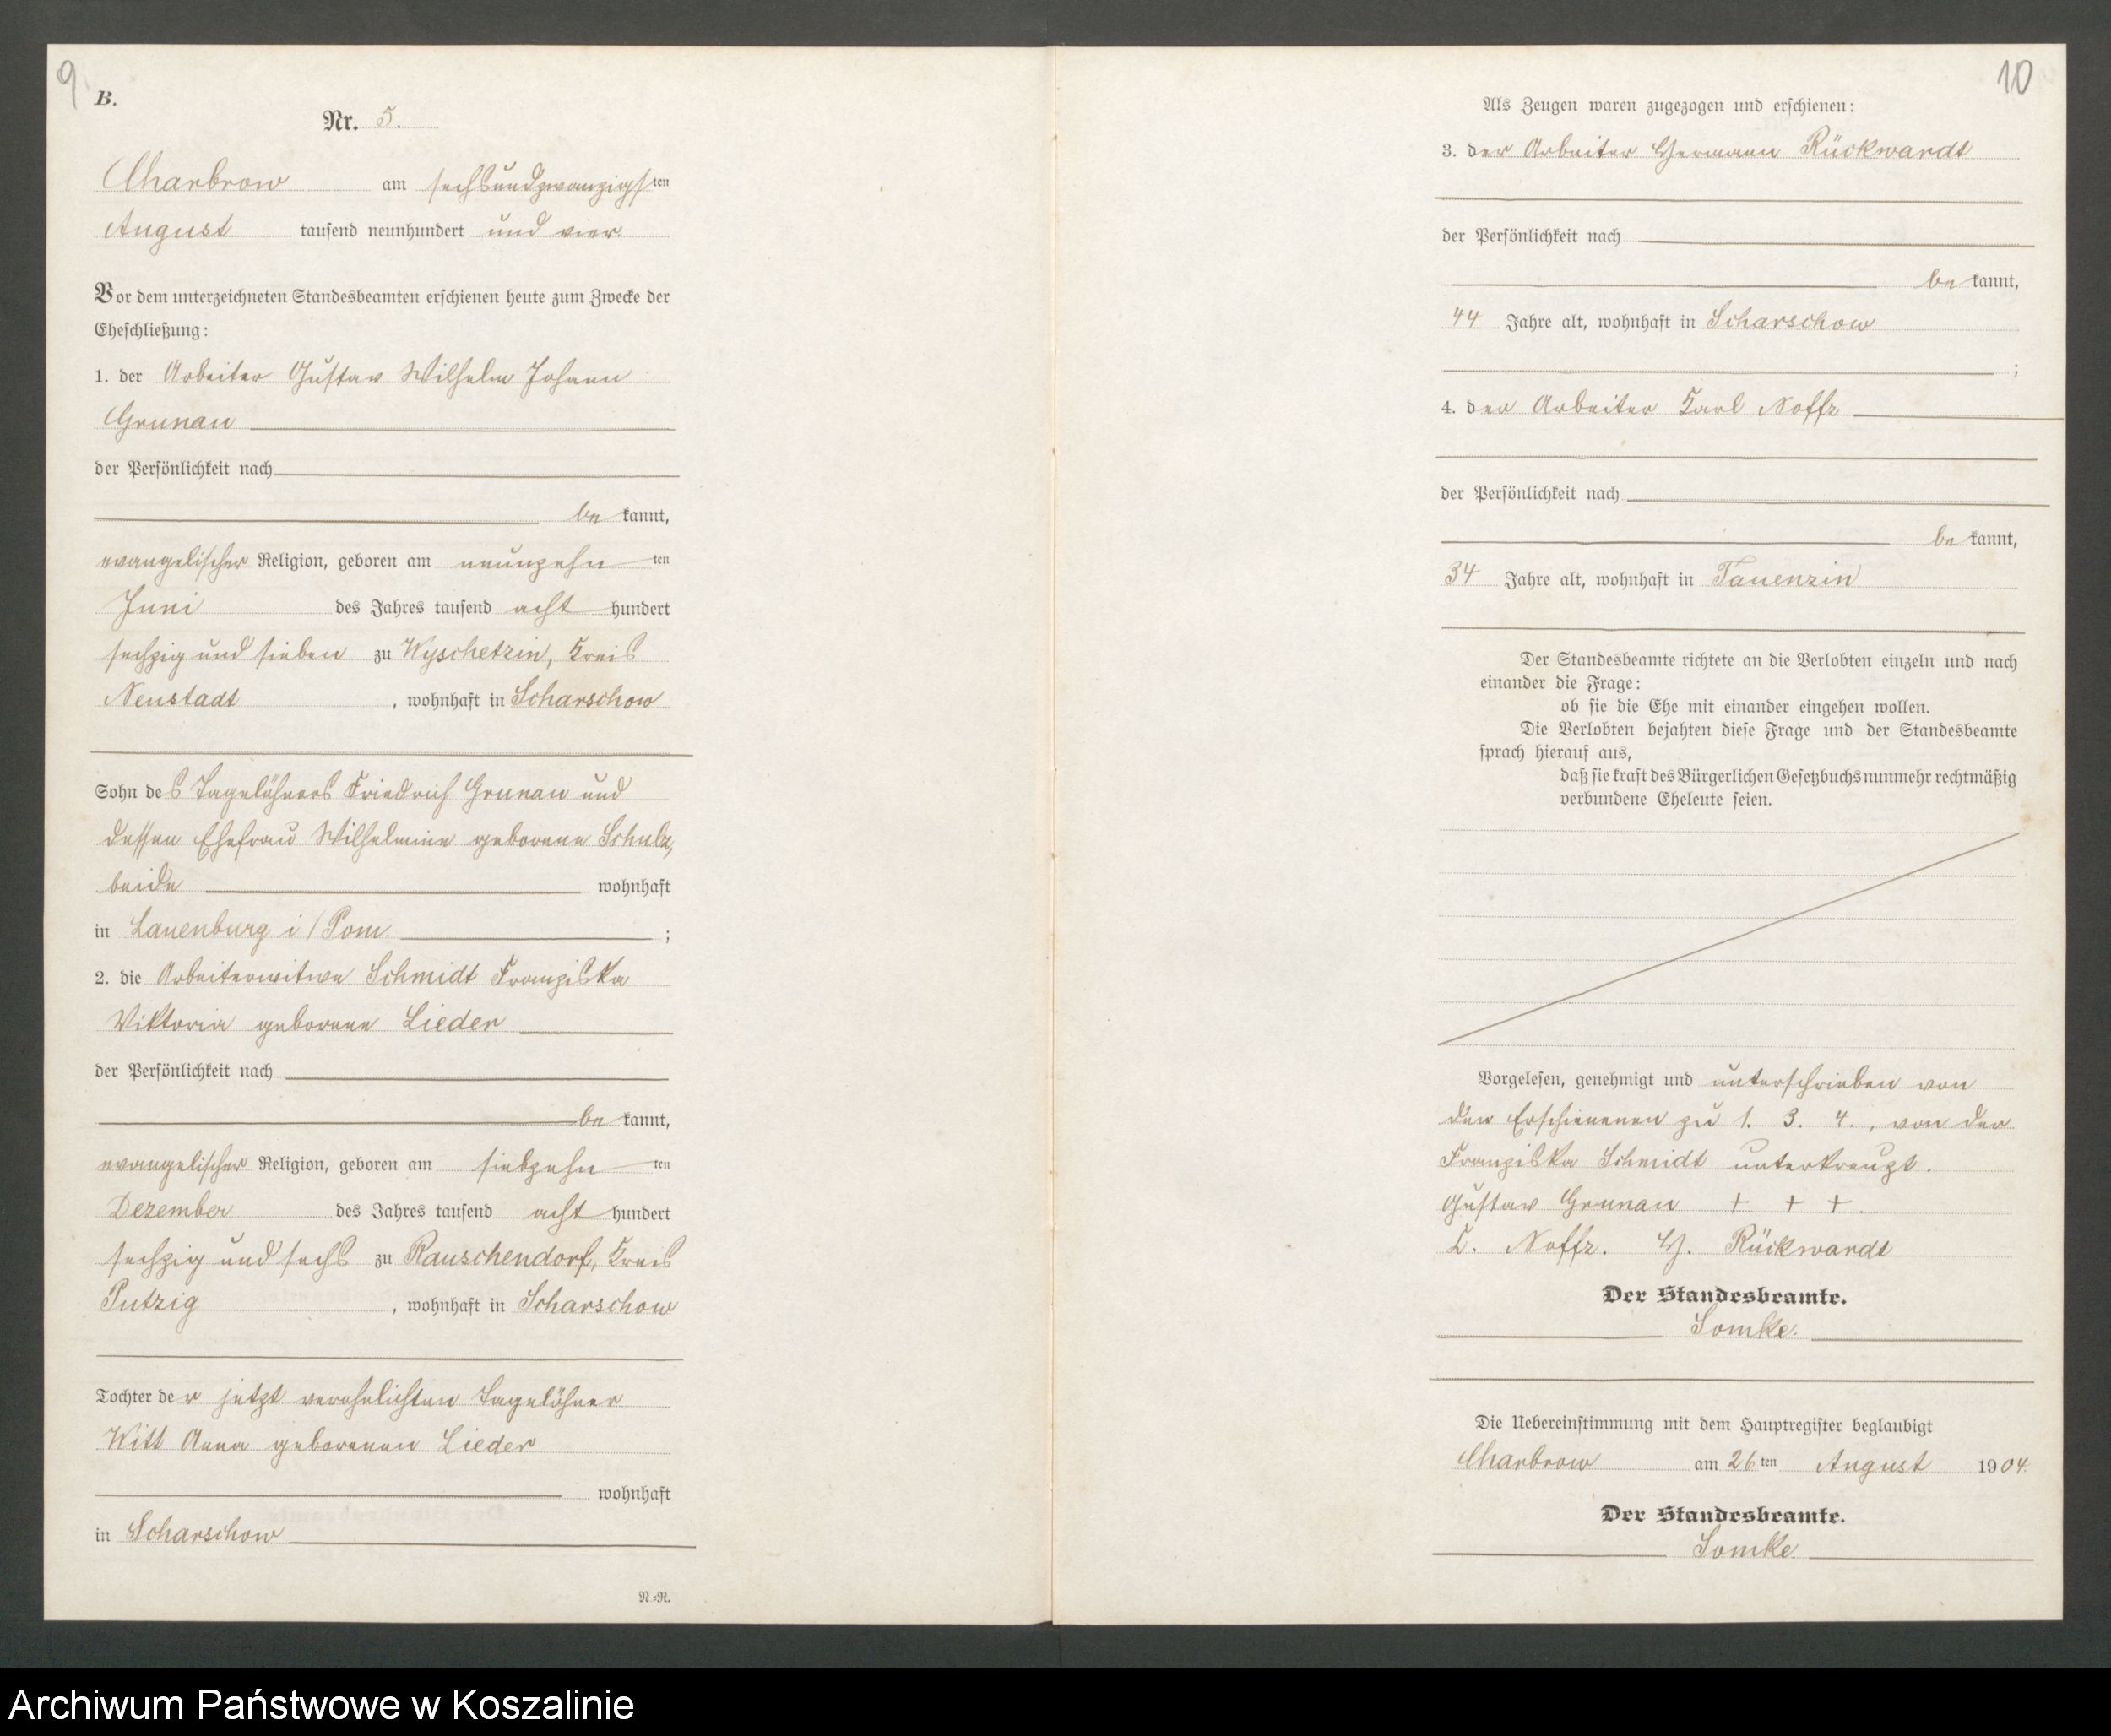 9
B.
Nr. 5.
Charbrow am sechsundzwanzigsten
August tausend neunhundert und vier
Vor dem unterzeichneten Standesbeamten erschienen heute zum Zwecke der
Eheschließung:
1. der Arbeiter Gustav Wilhelm Johann
Grunau
der Persönlichkeit nach
be kannt,
evangelischer Religion, geboren am neunzehn ten
Juni des Jahres tausend acht hundert
sechzig und sieben zu Wyschetzin, Kreis
Neustadt, wohnhaft in Scharschow
Sohn des Tagelöhners Friedrich Grunau und
dessen Ehefrau Wilhelmine geborene Schulz,
beide wohnhaft
in Lauenburg i/Pom. ;
2. die Arbeiterwitwe Schmidt Franziska
Viktoria geborene Lieder
der Persönlichkeit nach
be kannt,
evangelischer Religion, geboren am siebzehn ten
Dezember des Jahres tausend acht hundert
sechzig und sechs zu Rauschendorf, Kreis
Putzig, wohnhaft in Scharschow
Tochter der jetzt verehelichten Tagelöhner
Witt Anna geborenen Lieder
wohnhaft
in Scharschow
N.=N.
10
Als Zeugen waren zugezogen und erschienen:
3. der Arbeiter Hermann Rückwardt
der Persönlichkeit nach
be kannt,
44 Jahre alt, wohnhaft in Scharschow
;
4. der Arbeiter Karl Noffz
der Persönlichkeit nach
be kannt,
34 Jahre alt, wohnhaft in Tauenzin
Der Standesbeamte richtete an die Verlobten einzeln und nach
einander die Frage:
ob sie die Ehe mit einander eingehen wollen.
Die Verlobten bejahten diese Frage und der Standesbeamte
sprach hierauf aus,
daß sie kraft des Bürgerlichen Gesetzbuchs nunmehr rechtmäßig
verbundene Eheleute seien.
Vorgelesen, genehmigt und unterschrieben von
den Erschienenen zu 1. 3. 4., von der
Franziska Schmidt unterkreuzt.
Gustav Grunau + + +.
K. Noffz. H. Rückwardt
Der Standesbeamte.
Somke.
Die Uebereinstimmung mit dem Hauptregister beglaubigt
Charbrow am 26ten August 1904.
Der Standesbeamte.
Somke.
Archiwum Państwowe w Koszalinie